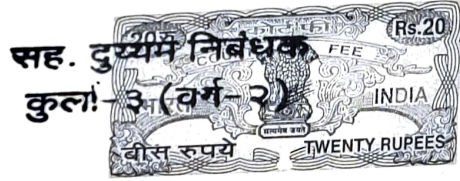 सह. दुय्यम निबंधक
कुर्ला-३ (वर्ग-२)
Rs.20
FEE
भारत INDIA
सत्यमेव जयते
बीस रुपये TWENTY RUPEES